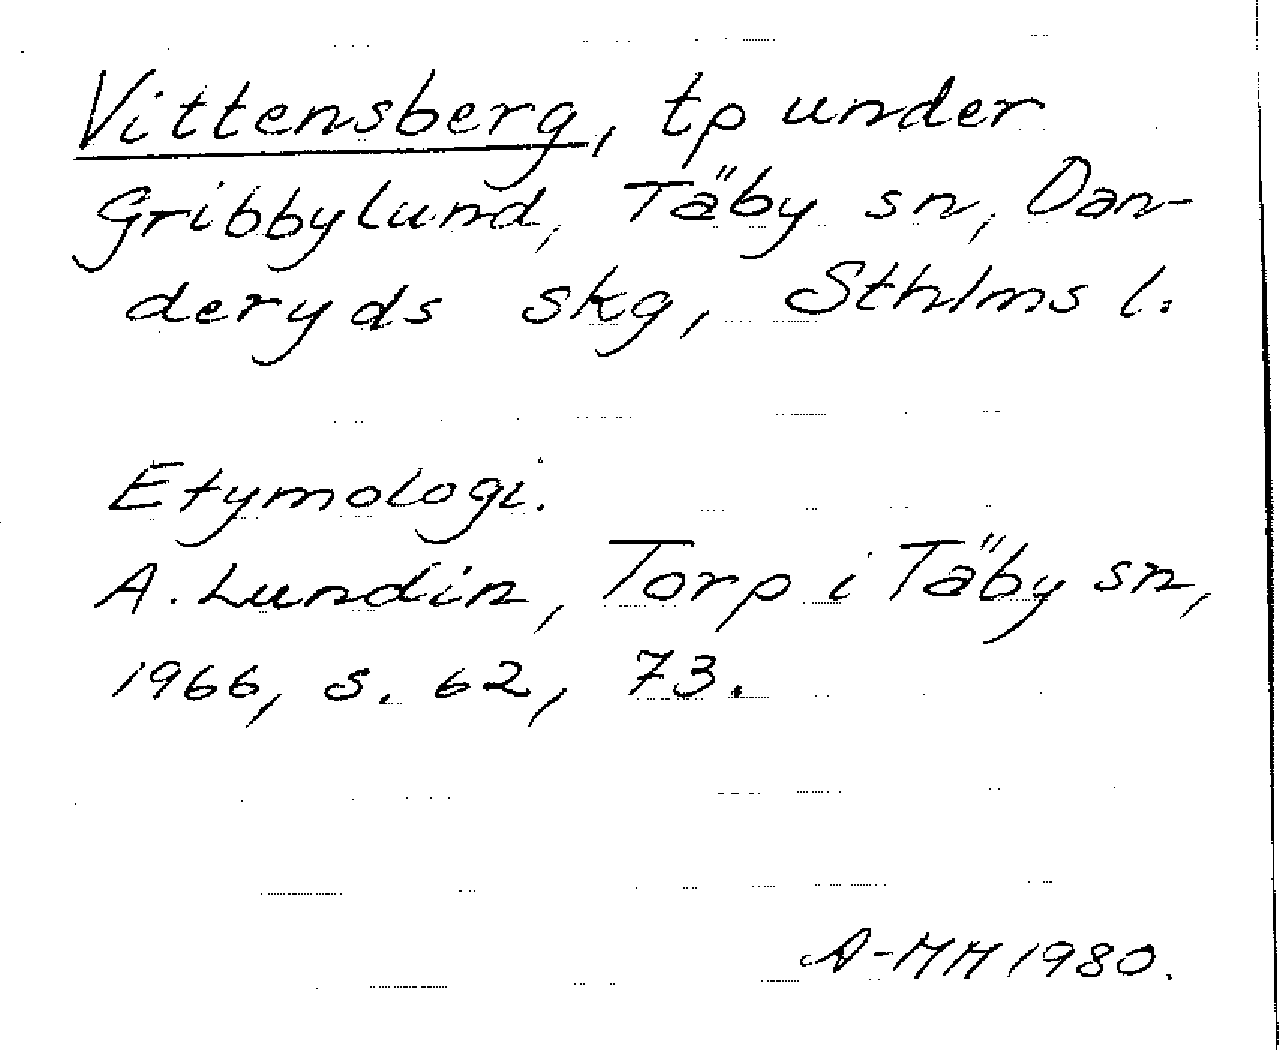 Vittensberg, tp under
Gribbylund, Täby sn, Dan-
deryds skg, Sthlms l.
Etymologi.
A. Lundin, Torp i Täby sn,
1966, s. 62, 73.
A-MM 1980.